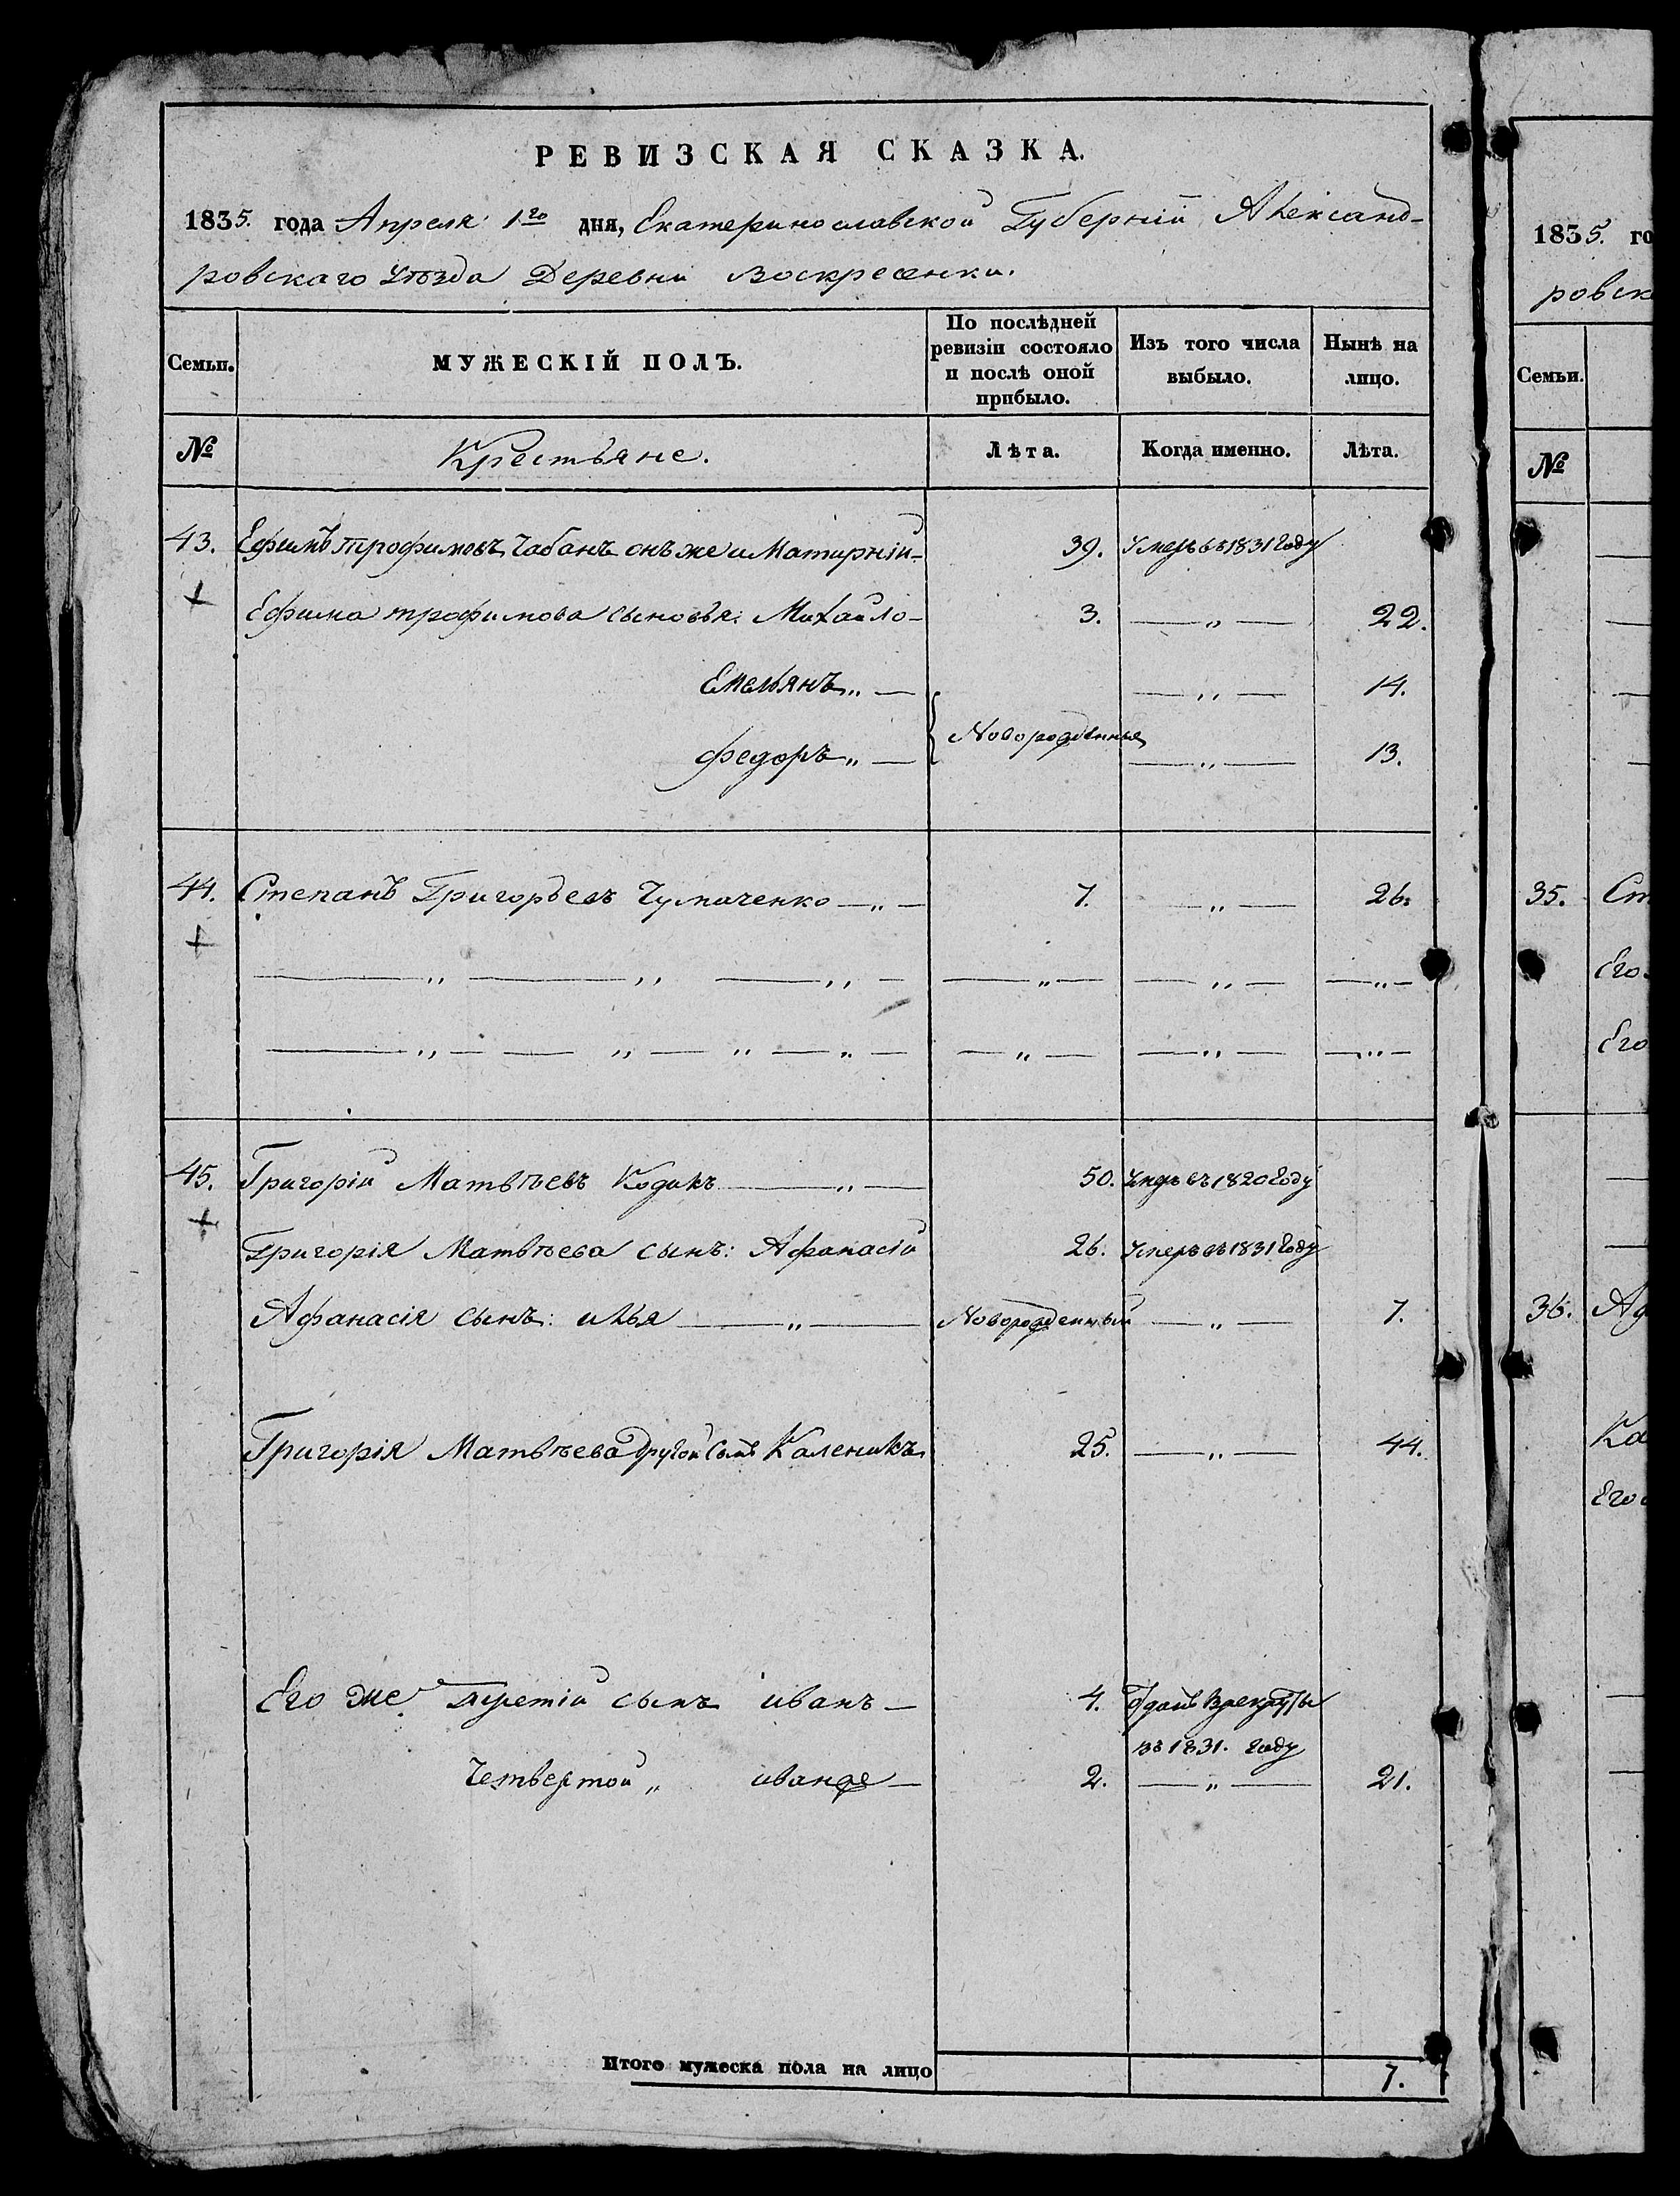 РЕВИЗСКАЯ СКАЗКА.
1835. года Апреля 1го дня, Екатеринославской Губерніи Александ-
ровскаго уѣзда Деревни Воскресенки.
Семьи. МУЖЕСКІЙ ПОЛЪ. По послѣдней ревизіи состояло и послѣ оной прибыло. Изъ того числа выбыло. Нынѣ на лицо.
№ Крестьяне. Лѣта. Когда именно. Лѣта.
43. Ефимъ трофимовъ Чабанъ онъ же и 39. Умеръ въ 1831 Году
Ефима трофимова сыновья: Михайло 3. — „ — 22.
Емельянъ „ — — „ — 14.
Новорожденныя
Федоръ „ — — „ — 13.
44. Степанъ Григорьевъ Чумаченко — „ — 7. — „ — 26.
45. Григорій Матвѣевъ Кодакъ — „ — 50. Умеръ въ 1820 Году
Григорія Матвѣева сынъ: Афанасій 26. Умеръ въ 1831 Году
Афанасія сынъ: илья — „ — Новорожденный — „ — 7.
Григорія Матвѣева Другой Сынъ Каленикъ 25. — „ — 44.
Его же третій сынъ иванъ — 4. Отданъ Врекруты
въ 1831. Году
Четвертой „ иванже — 2. — „ — 21.
Итого мужеска пола на лицо 7.
1835. го
ровск
Семьи.
№
35. Ст
Его
Его
36. Аф
Ка
Его